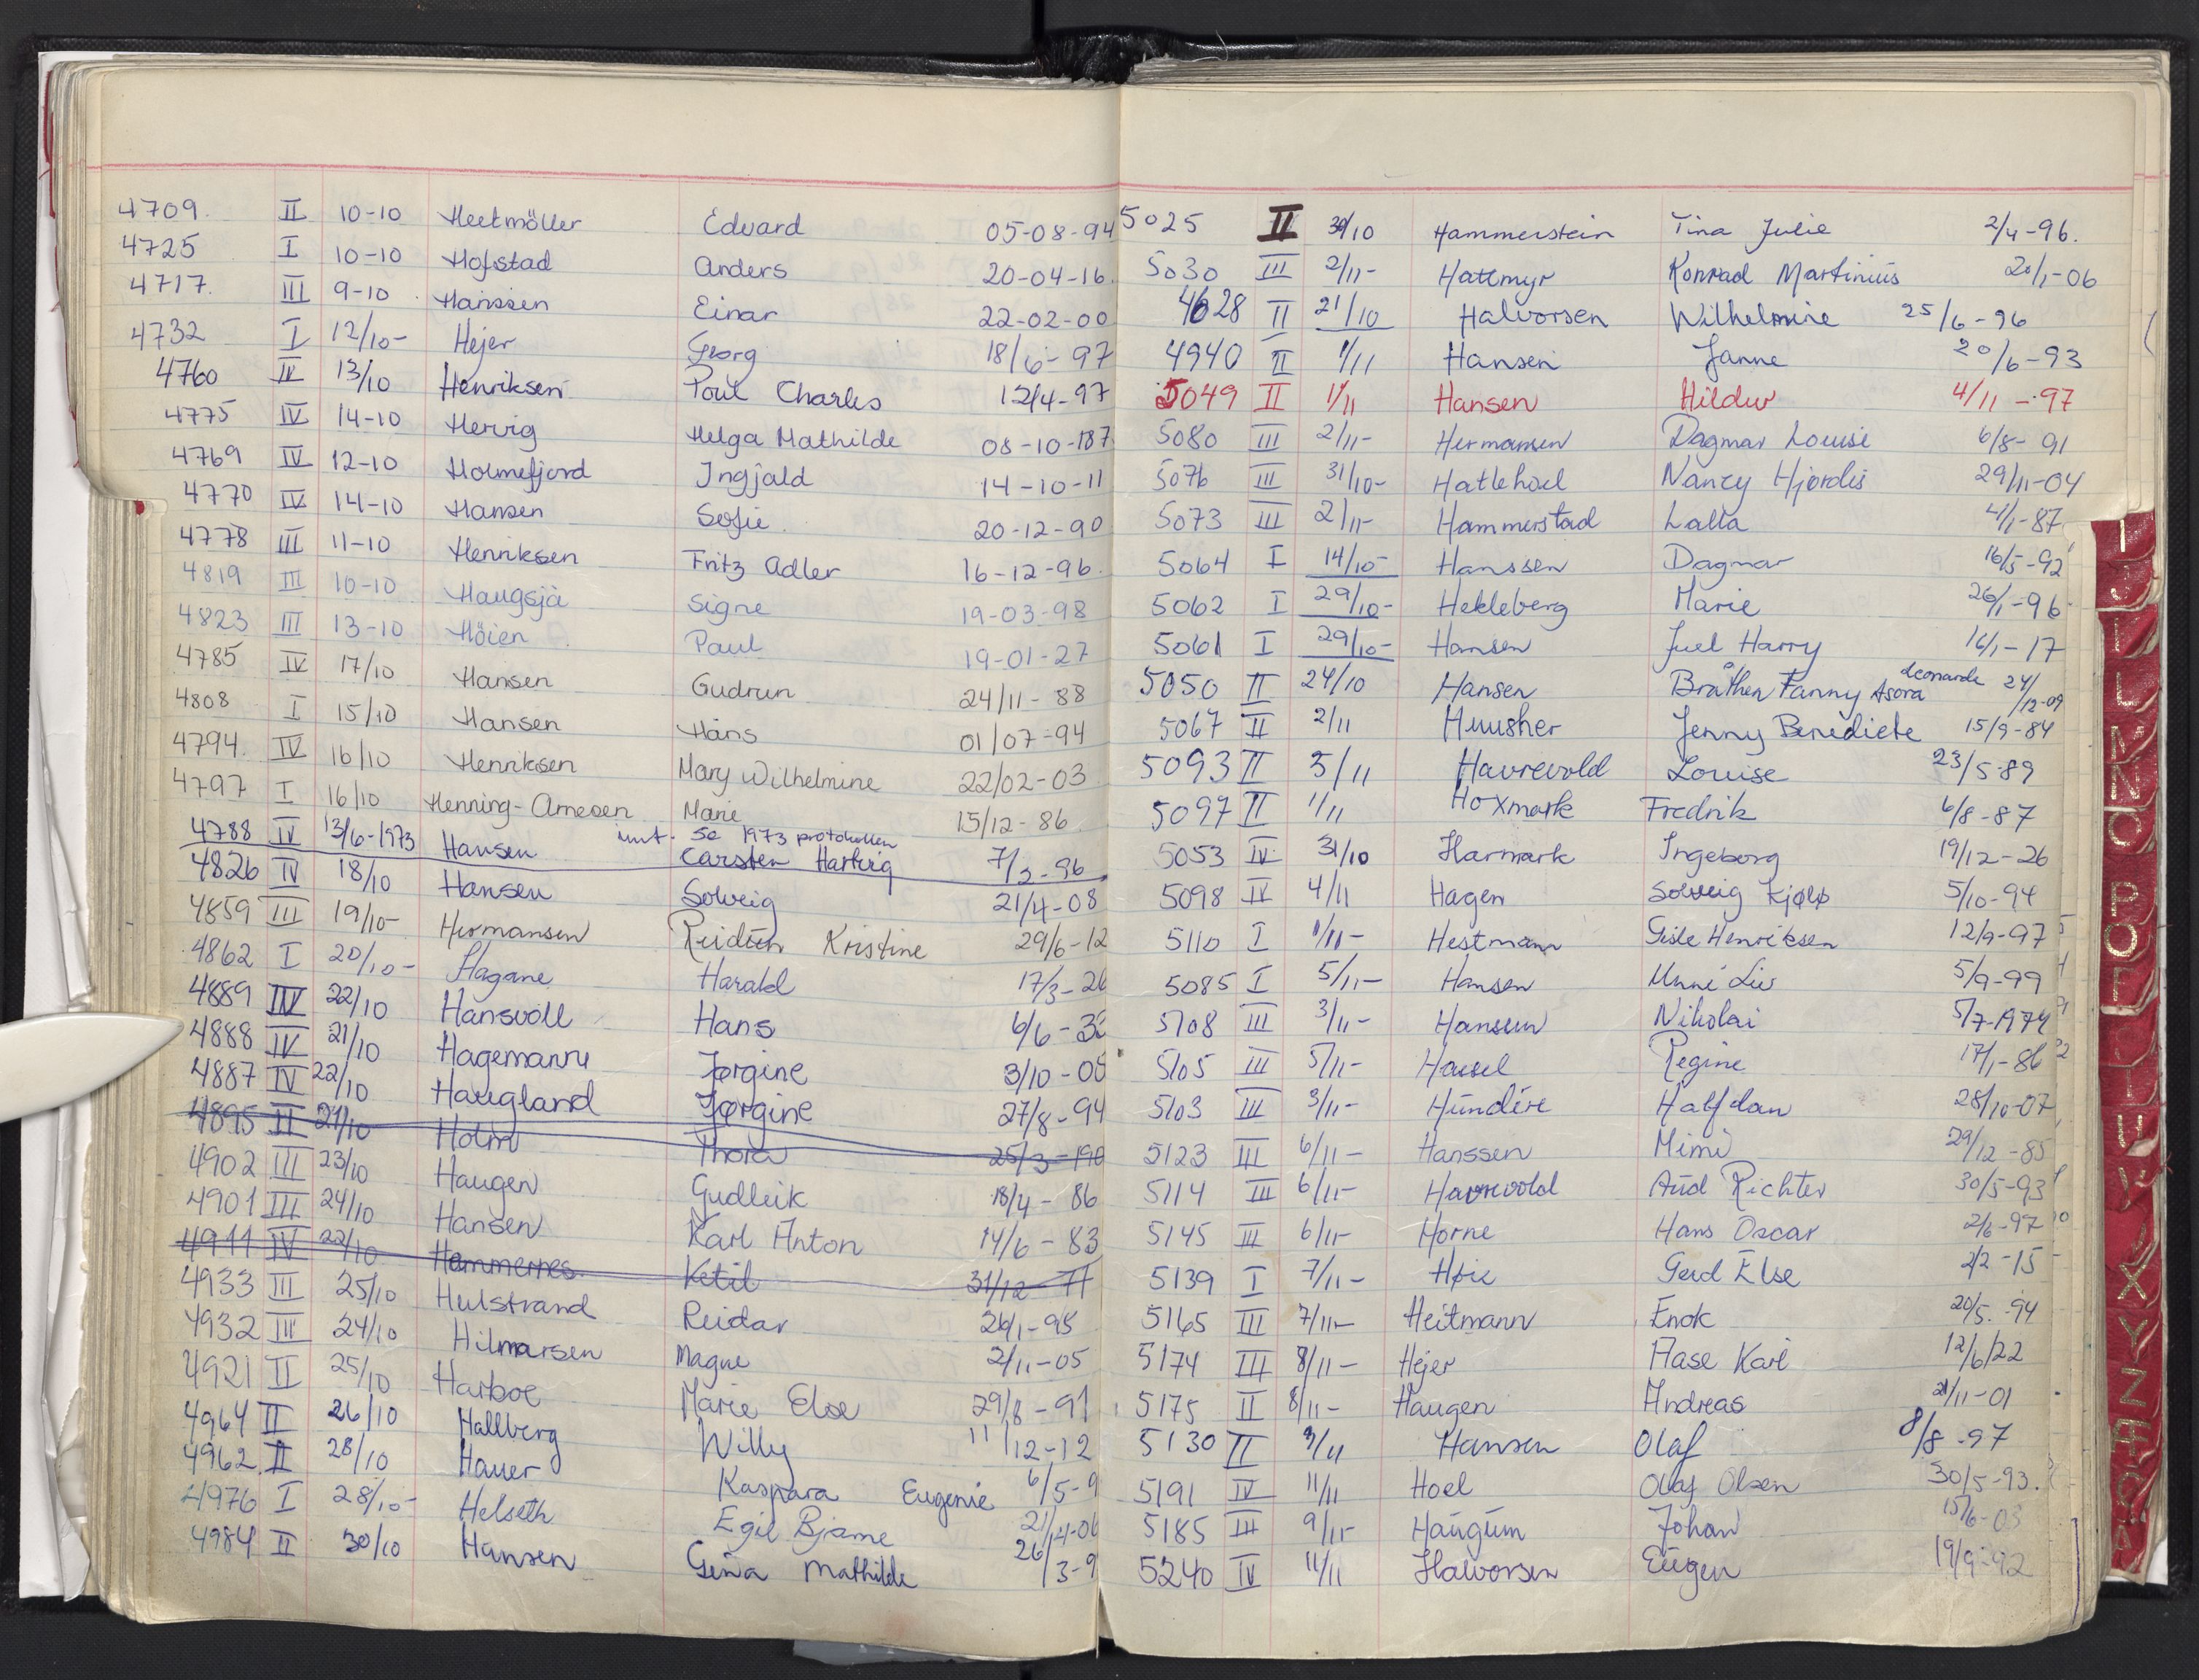 4709. II 10-10 Heetmöller Edvard 05-08-94
4725 I 10-10 Hofstad Anders 20-04-16
4717. III 9-10 Hanssen Einar 22-02-00
4732 I 12/10- Hejer Georg 18/6-97
4760 IV 13/10 Henriksen Poul Charles 12/4-97
4775 IV 14-10 Hervig Helga Mathilde 08-10-187
4769 IV 12-10 Holmefjord Ingjald 14-10-11
4770 IV 14-10 Hansen Sofie 20-12-90
4778 III 11-10 Henriksen Fritz Adler 16-12-96
4819 III 10-10 Haugsjå Signe 19-03-98
4823 III 13-10 Höien Paul 19-01-27
4785 IV 17/10 Hansen Gudrun 24/11-88
4808 I 15/10 Hansen Hans 01/07-94
4794. IV 16/10 Henriksen Mary Wilhelmine 22/02-03
4797 I 16/10 Henning-Arnesen Marie 15/12-86
4788 IV 13/6-1973 Hansen se 1973 protokollen Carsten Hartvig 7/2-96
4826 IV 18/10 Hansen Solveig 21/4-08
4859 III 19/10- Hermansen Reidun Kristine 29/6-12
4862 I 20/10- Hagane Harald 17/3-26
4889 IV 22/10 Hansvoll Hans 6/6-
4888 IV 21/10 Hagemann Jørgine 3/10-
4887 IV 22/10 Haugland Jørgine 27/8-94
4895 II 21/10 Holm Thora 25/3-190
4902 III 23/10 Haugen Gudleik 18/4-86
4901 III 24/10 Hansen Karl Anton 14/6-83
4911 IV 22/10 Hammernes Ketil 31/12-71
4933 III 25/10 Hulstrand Reidar 26/1-98
4932 III 24/10 Hilmarsen Magne 2/11-05
4921 II 25/10 Harboe Marie Else 29/8-91
4964 II 26/10 Hallberg Willy 11/12-12
4962 II 28/10 Hauer Kaspara Eugenie 6/5-9
4976 I 28/10- Helseth Egil Bjarne 21/4-06
4984 II 30/10 Hansen Gina Mathilde 26/3-9
5025 II 30/10 Hammerstein Tina Julie 2/4-96.
5030 III 2/11- Hattmyr Konrad Martinius 20/1-06
4628 II 21/10 Halvorsen Wilhelmine 25/6-96
4940 II 1/11 Hansen Janne 20/6-93
5049 II 1/11 Hansen Hildur 4/11-97
5080 III 2/11- Hermansen Dagmar Louise 6/8-91
5076 III 31/10- Hatlehoel Nancy Hjørdis 29/11-04
5073 III 2/11- Hammerstad Lalla 4/1-87
5064 I 14/10- Hanssen Dagmar 16/5-92
5062 I 29/10- Hekleberg Marie 26/1-96
5061 I 29/10- Hansen Juel Harry 16/1-17
5050 II 24/10 Hansen Bråthen Fanny Asora Leonarda 24/12-09
5067 II 2/11 Huusher Jenny Benedicte 15/9-84
5093 II 3/11 Haurevold Louise 23/5-89
5097 II 1/11 Hoxmark Fredrik 6/8-87
5053 IV 31/10 Harmark Ingeborg 19/12-26
5098 IV 4/11 Hagen Solveig Kjølø 5/10-94
5110 I 1/11- Hestmann Gisle Henriksen 12/9-97
5085 I 5/11- Hansen Unni Liv 5/9-99
5108 III 3/11- Hansen Nikolai 5/7-1974
5105 III 5/11- Hassel Regine 17/1-86
5103 III 3/11- Hundere Halfdan 28/10-07
5123 III 6/11- Hanssen Mimi 29/12-85
5114 III 6/11- Haurevold Aud Richter 30/5-93
5145 III 6/11- Horne Hans Oscar 2/6-97
5139 I 7/11- Høie Gerd Else 2/2-15
5165 III 7/11- Heitmann Enok 20/5-94
5174 III 8/11- Hejer Aase Kari 12/6/22
5175 II 8/11- Haugen Andreas 21/11-01
5130 II 9/11 Hansen Olaf 8/8-97
5191 IV 11/11 Hoel Olaf Olsen 30/5-93.
5185 III 9/11- Haugum Johan 15/6-03
5240 IV 11/11 Halvorsen Eugen 19/9-92
I
J
L
N
O
P
X
Y
Z